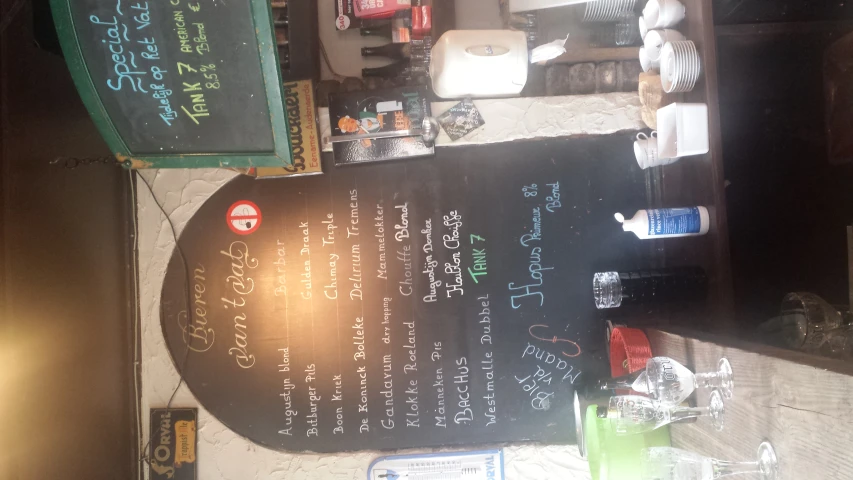 Special
Tijdelijk op Het Vat
TANK 7 AMERICAN
8.5% Blond €
ORVAL
trappist
Bieren
van 't vat
Augustijn blond
Barbar
Bitburger Pils
Gulden Draak
Boon Kriek
Chimay Triple
De Koninck Bolleke
Delirium Tremens
Gandavum dry hopping
Mammelokker
Klokke Roeland
Chouffe Blond
Manneken Pis
Augustijn Donker
BACCHUS
Houblon Chouffe
Westmalle Dubbel
TANK 7
Bier
v/d
Maand
Hopus Primeur 8%
Blond
ORVAL